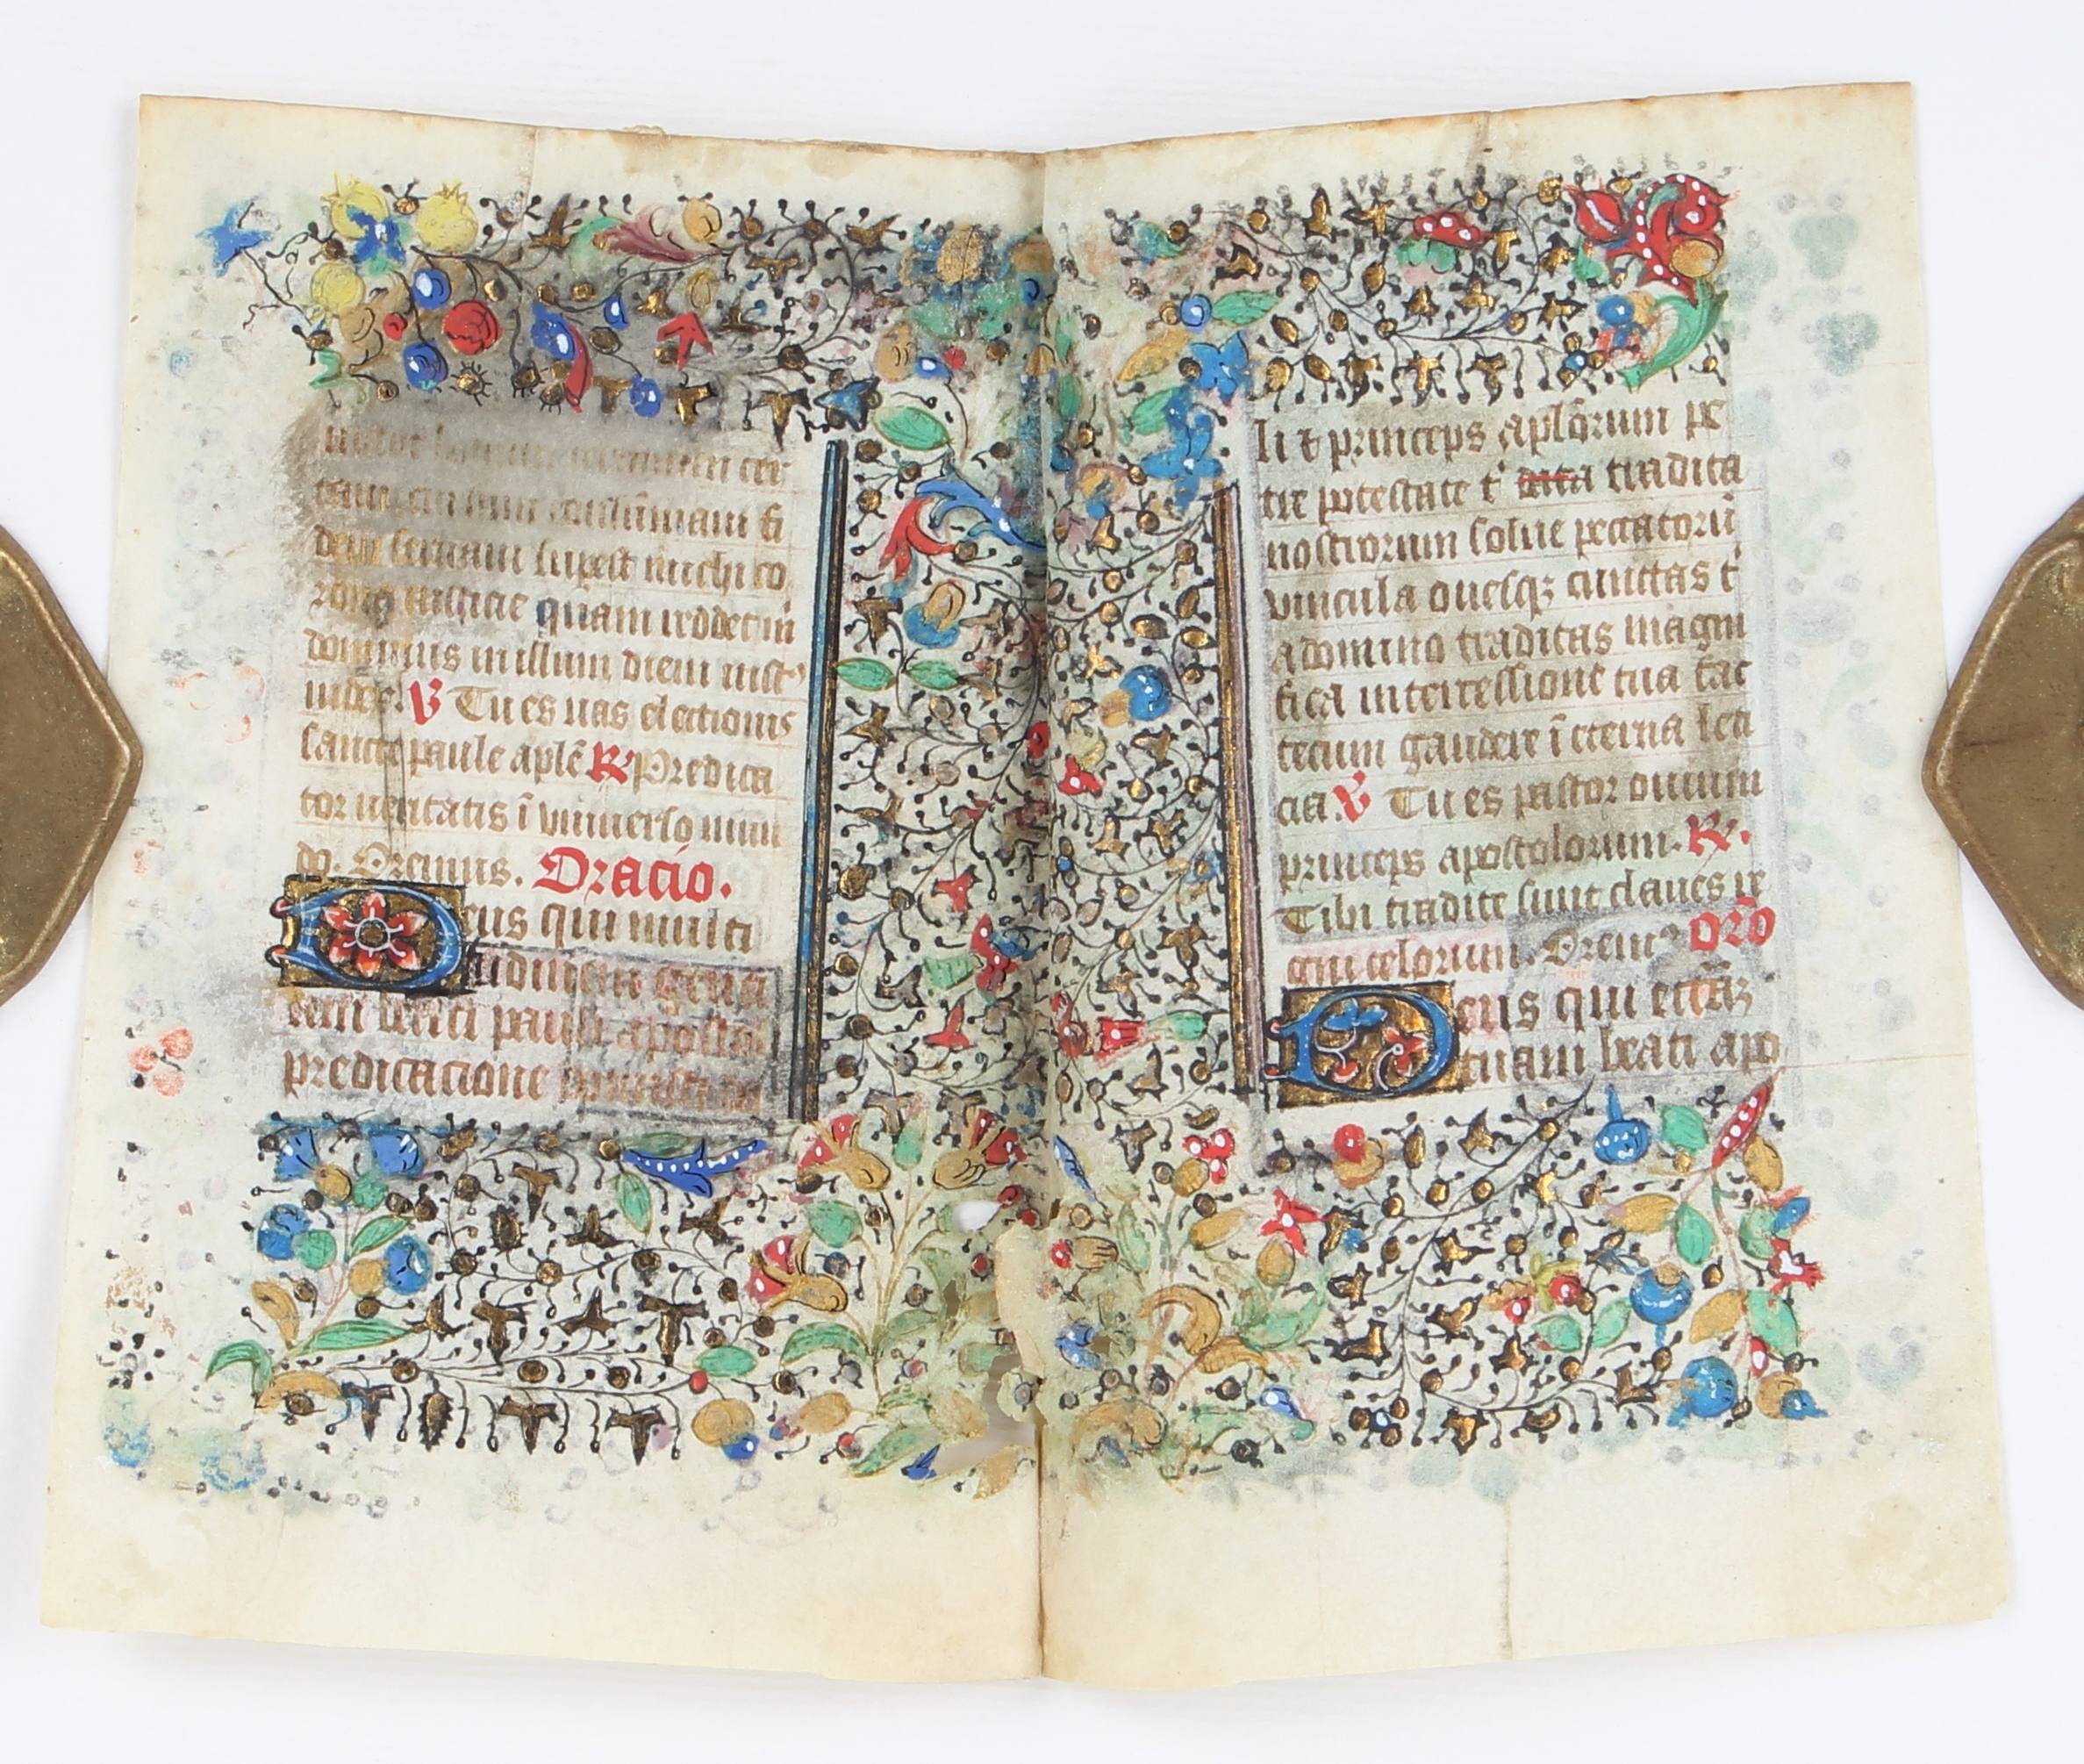 cer
tamen cursum consu̅mavi fi
dem servavi supest michi co
rona iusticie quam reddet m̅
dominus in illum diem iust᾽
iudex. V̸ Tu es uas electionis
sancte paule aplē R̸ Predica
tor ueritatis ī uniuerso mun
do. Oremus. Oracio.
Deus qui multi
tudinem genti
um beati pauli apostoli
predicacione
li ⁊ princeps aplo̅rum pe
tre potestate t᾽ data tradita
nostrorum solue peccatorū
uincula ouesqꝫ cunctas t᾽
a domino traditas magni
fica intercessione tua fac
tecum gaudere ī eterna leti
cia. V̸ Tu es pastor ouium
princeps apostolorum. R̸.
Tibi tradite sunt claues re
gni celorum. Oremꝰ Or̅o
Deus qui
tuam beati apo